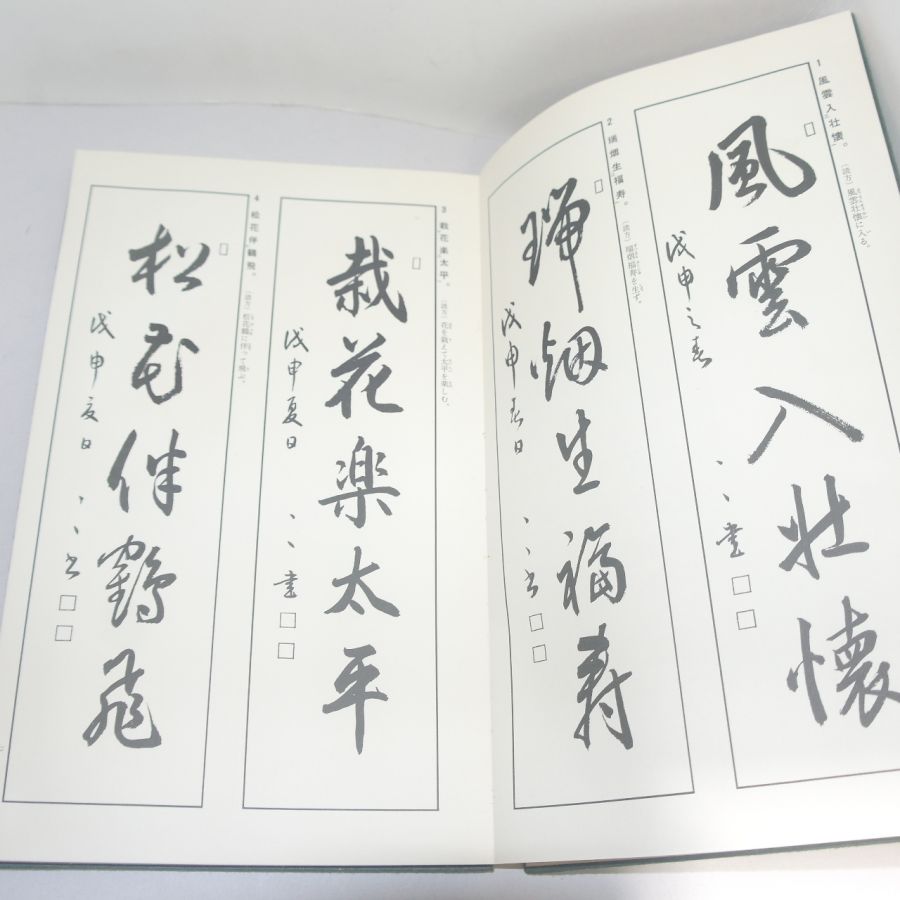 1 風雲入壮懐。
(読方)風雲壮懐に入る。
風雲入壮懐
戊申之春
、、書
2 瑞烟生福寿。
(読方)瑞烟福寿を生ず。
瑞烟生福寿
戊申春日
、、書
3 栽花楽太平。
(読方)花を栽えて太平を楽しむ。
栽花楽太平
戊申夏日
、、書
4 松花伴鶴飛。
(読方)松花鶴に伴って飛ぶ。
松花伴鶴飛
戊申夏日
、、書